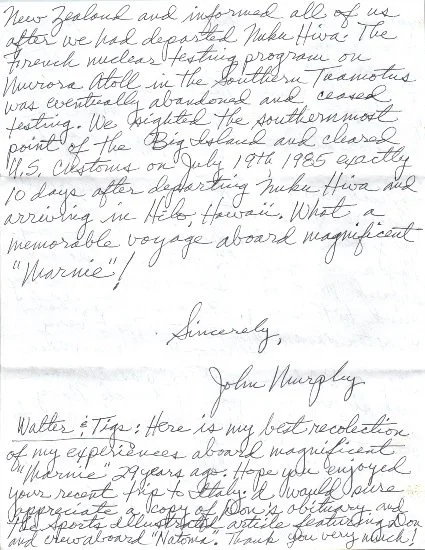 New Zealand and informed all of us
after we had departed Nuku Hiva. The
French nuclear testing program on
Muroroa Atoll in the Southern Tuamotus
was eventually abandoned and ceased
testing. We sighted the southernmost
point of the Big Island and cleared
U.S. Customs on July 19th, 1985 exactly
10 days after departing Nuku Hiva and
arriving in Hilo, Hawaii. What a
memorable voyage aboard magnificent
"Marnie"!
Sincerely,
John Murphy
Walter & Tigs: Here is my best recolection
of my experiences aboard magnificent
"Marnie" 29 years ago. Hope you enjoyed
your recent trip to Italy. I would sure
appreciate a copy of Don's obituary and
the Sports Illustrated article featuring Don
and crew aboard "Natoma". Thank you very much!